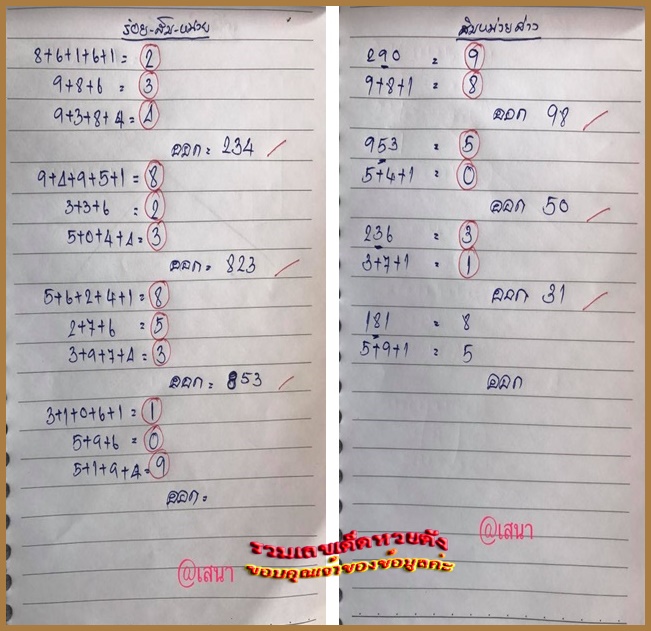 ร้อย-สิบ-หน่วย
8+6+1+6+1= 2
9+8+6 = 3
9+3+8+4= 4
ออก= 234
9+4+9+5+1= 8
3+3+6 = 2
5+0+4+4= 3
ออก= 823
5+6+2+4+1= 8
2+7+6 = 5
3+9+7+4= 3
ออก= 853
3+1+0+6+1= 1
5+9+6 = 0
5+1+9+4= 9
ออก=
@เสนา
สิบหน่วยล่าง
290 = 9
9+8+1 = 8
ออก 98
953 = 5
5+4+1 = 0
ออก 50
236 = 3
3+7+1 = 1
ออก 31
181 = 8
5+9+1 = 5
ออก
@เสนา
รวมเลขเด็ดหวยดัง
ขอบคุณเจ้าของข้อมูลค่ะ